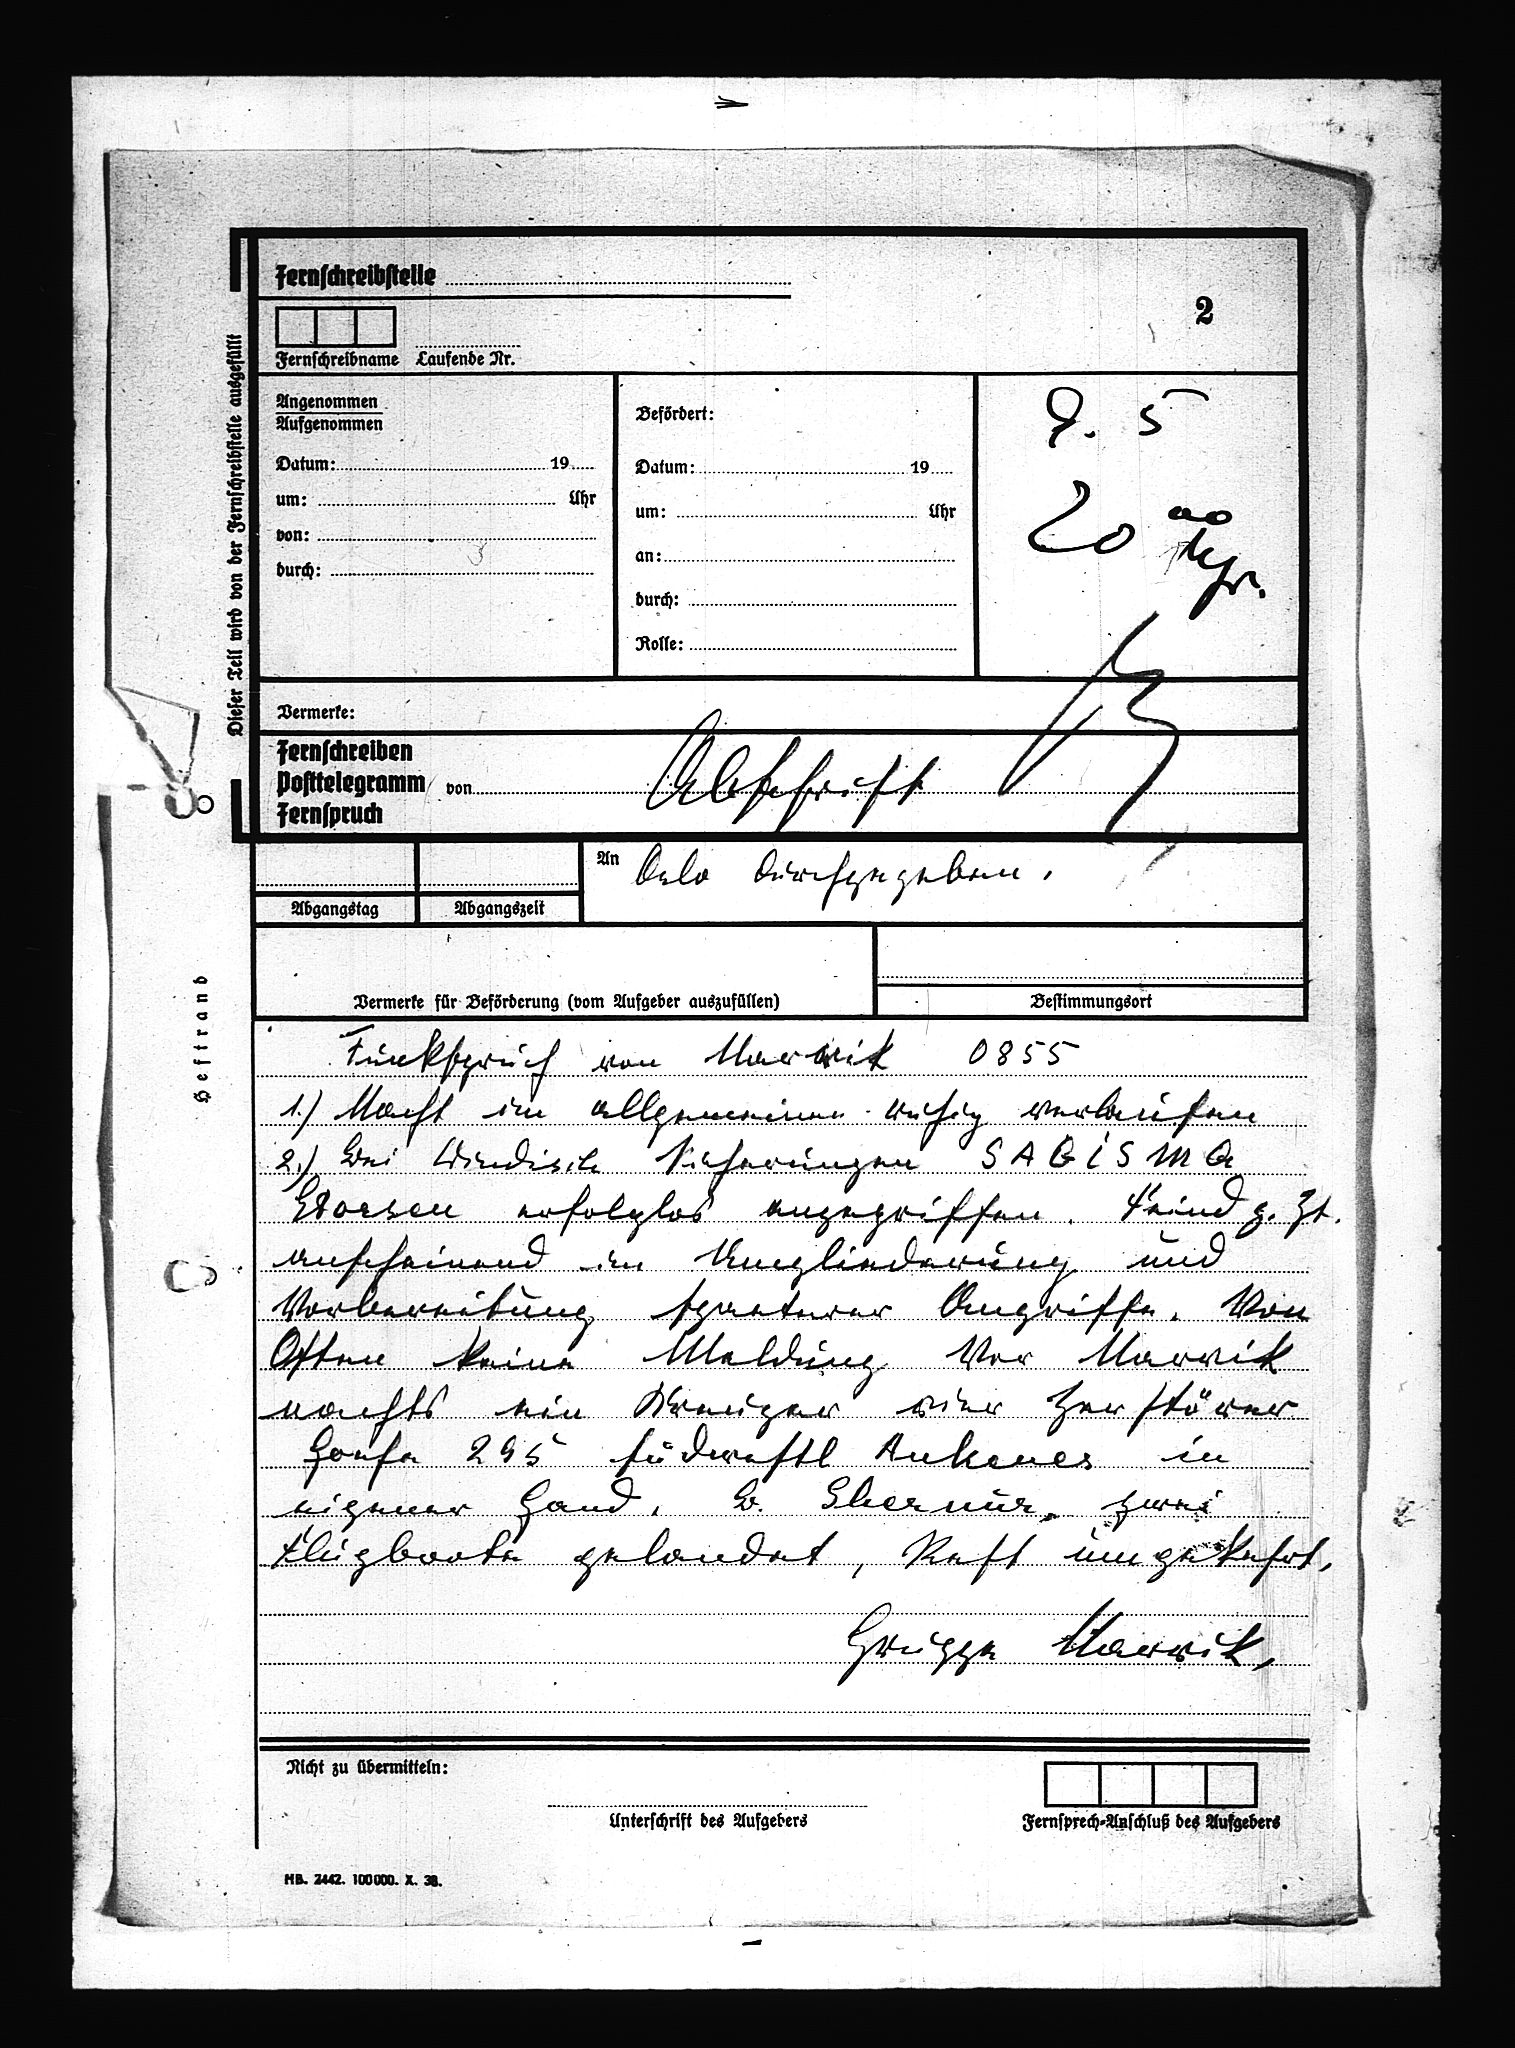 Fernschreibstelle
2
Fernschreibname Laufende Nr.
Dieser Teil wird von der Fernschreibstelle ausgefüllt
Angenommen
Aufgenommen
Datum: 19
um: Uhr
von:
durch:
Befördert:
Datum: 19
um: Uhr
an:
durch:
Rolle:
5
20 00
Vermerke:
Fernschreiben
Posttelegramm von
Fernspruch
Abschrift
An Oslo durchgegeben.
Abgangstag Abgangszeit
Vermerke für Beförderung (vom Aufgeber auszufüllen) Bestimmungsort
Heftrand
Funkspruch von Narvik 0855
1.) Nacht im allgemeinen ruhig verlaufen
2.) Bei Windisch Sicherungen
erfolglos angegriffen. Feind z. Zt.
anscheinend in Umgliederung und
Vorbereitung spaeterer Angriffe. Von
Osten keine Meldung Vor Narvik
nachts ein Kreuzer vier Zerstörer
Hoehe 295 südwestl Ankenes in
eigener Hand. zwei
Flugboote gelandet, Rest umgekehrt.
Gruppe Narvik.
Nicht zu übermitteln:
Unterschrift des Aufgebers
Fernsprech-Anschluß des Aufgebers
HB. 2442. 100000. X. 38.